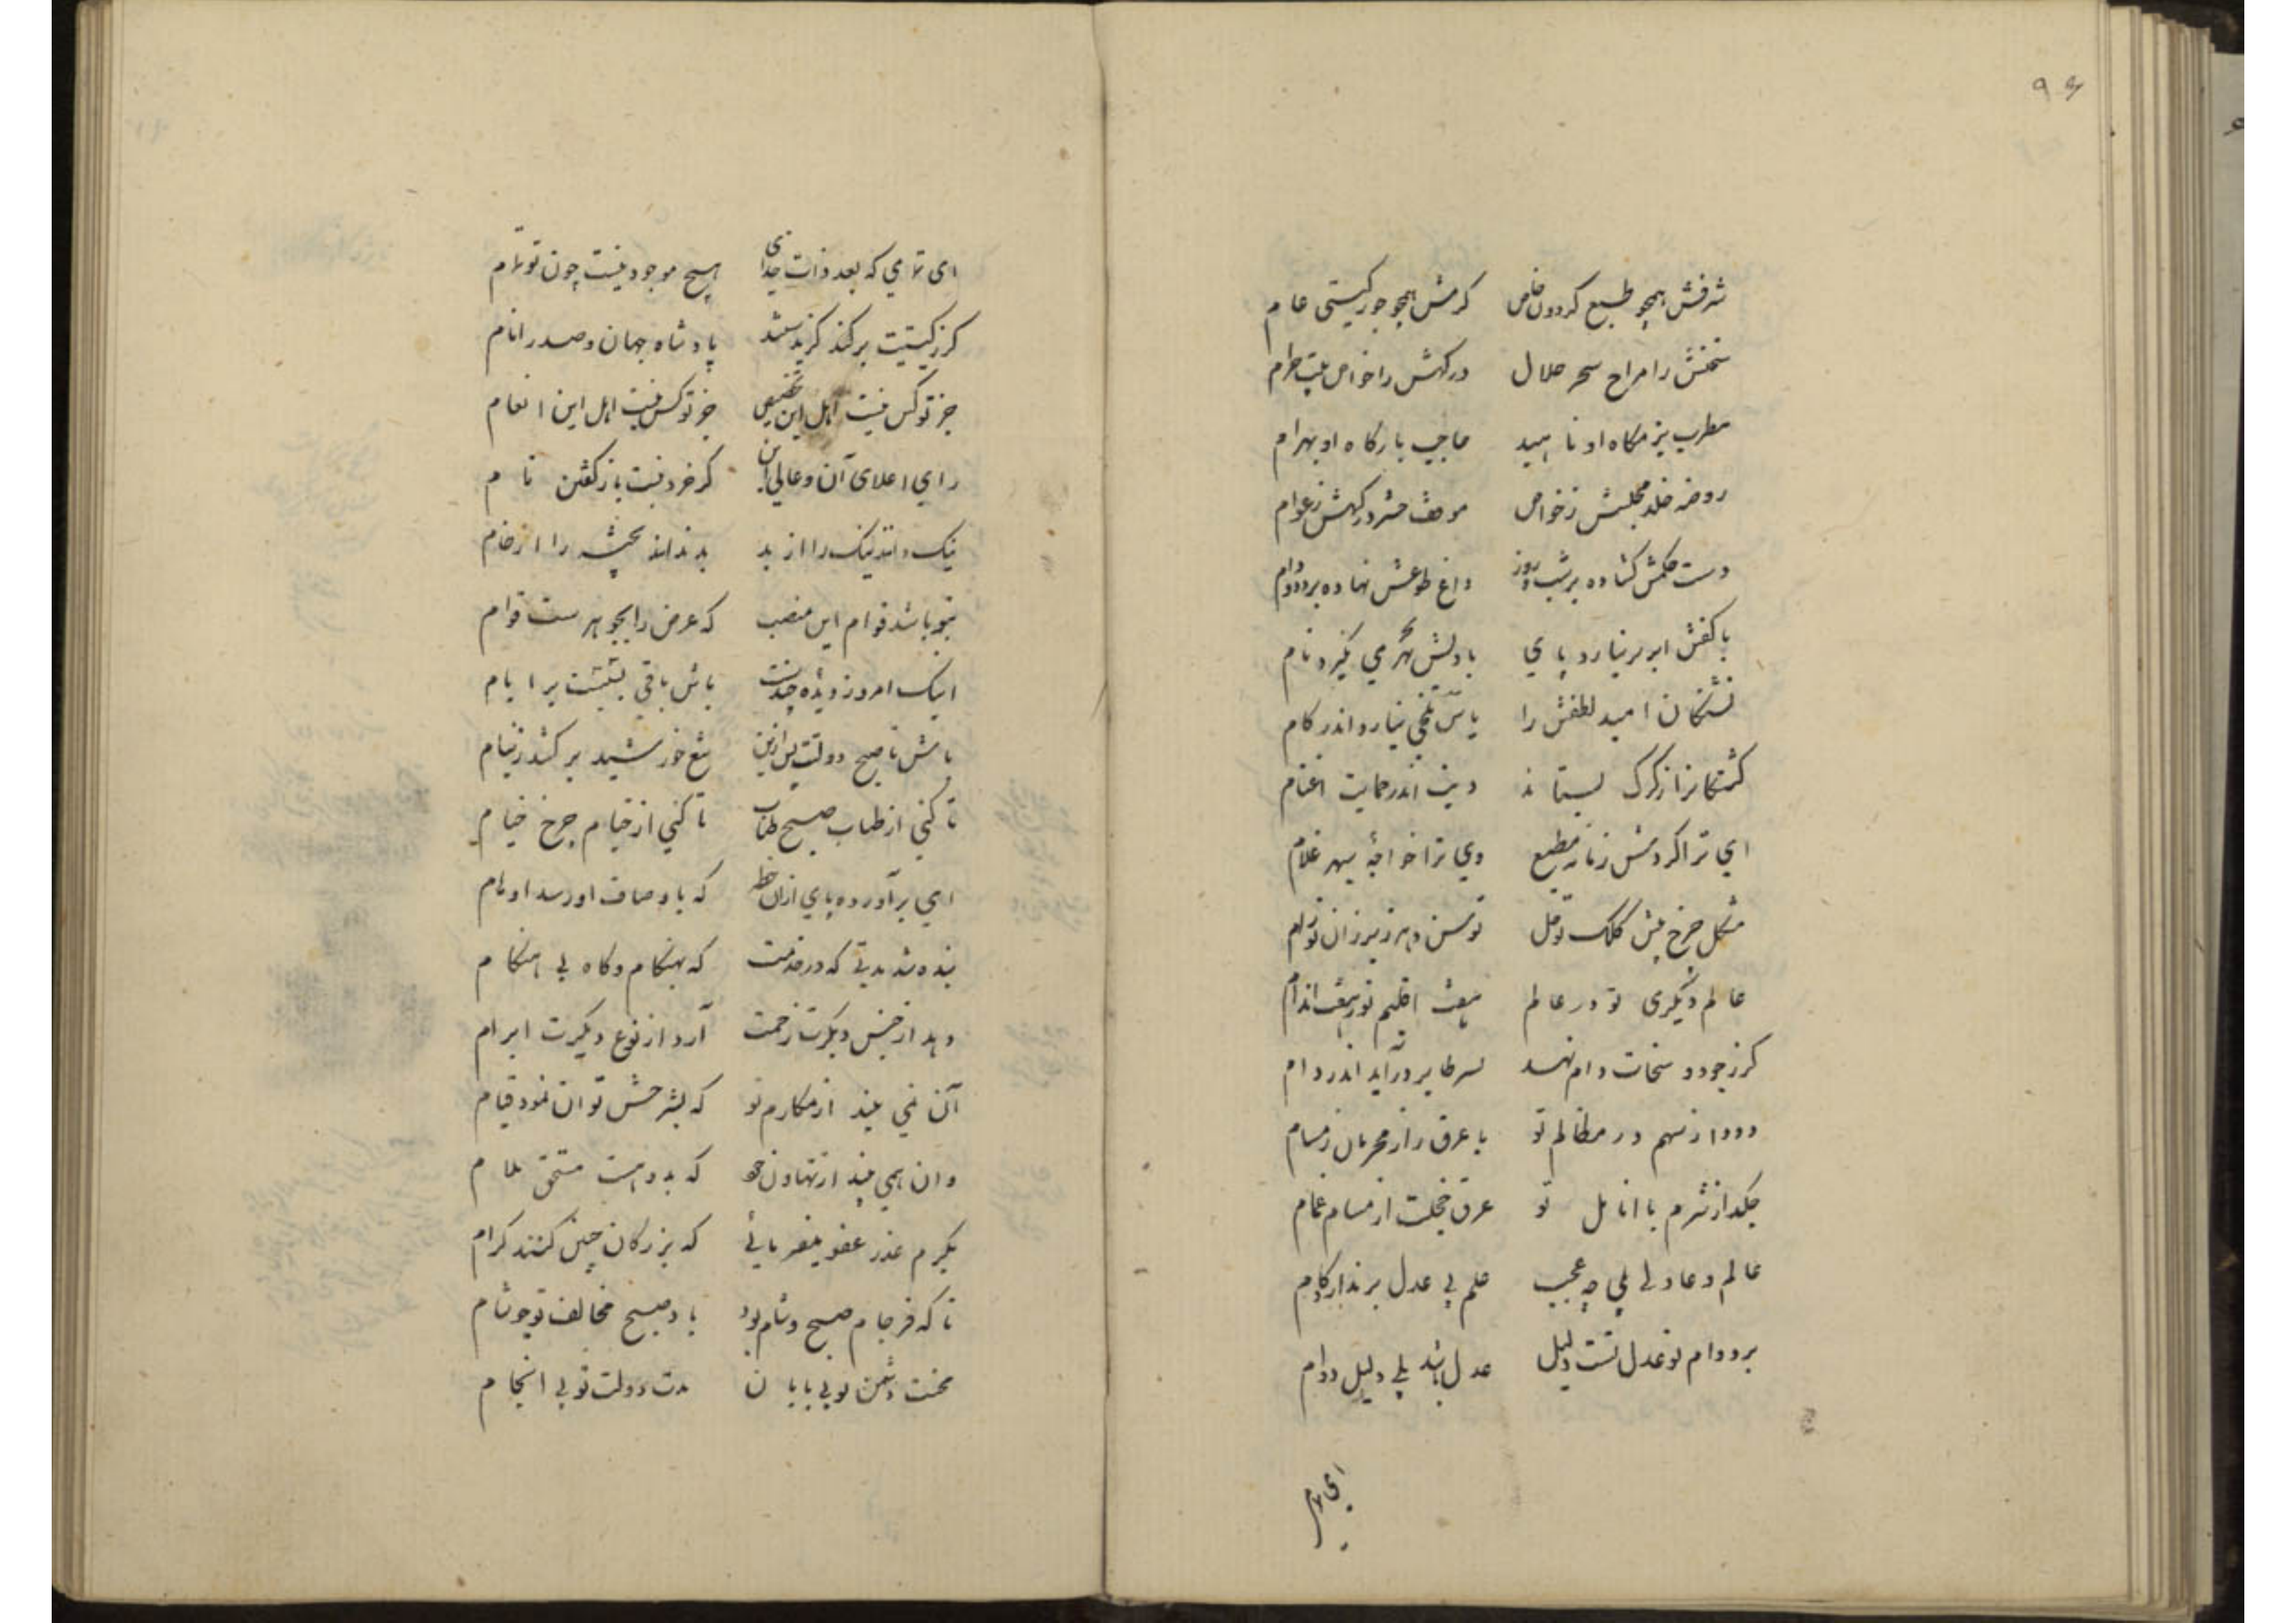 ۹۶
شرفش همچو طبع کردون خاص کرمش همچو جور کیتی عام
سخنش را مزاج سحر حلال درکهش را خواص بیت حرام
مطرب بزمکاه او ناهید حاجب بارکاه او بهرام
روضه خلد مجلسش زخواص موقف حشر درکهش زعوام
دست حکمش کشاده بر شب و روز داغ طوعش نهاده بر دد و دام
با کفش ابر بر نیارد پای با دلش بحر می نکیرد نام
تشنکان امید لطفش را یاس تلخی نیارد اندر کام
کشتکانرا ز کرک بستاند دیت اندر حمایت اغنام
ای ترا کردش زمانه مطیع وی ترا خواجهٔ سپهر غلام
مشکل چرخ پیش کلک تو حل توسن دهر زیر ران تو رام
عالم دیکری تو در عالم هفت اقلیم تو ز هفت اندام
کر ز جود و سخات دام نهند نسر طایر درآید اندر دام
دود از سهم در مظالم تو با عرق راز مجرمان ز مسام
چکد از شرم با انامل تو عرق خجلت از مسام غمام
عالم و عادلی بلی چه عجب علم بی عدل بر ندارد کام
بر دوام تو عدل تست دلیل عدل باشد بلی دلیل دوام
ای تمام
ای تمامی که بعد ذات خدای هیچ موجود نیست چون تو تمام
کر ز کیتیت برکزید سزد پادشاه جهان و صدر انام
جز تو کس نیست اهل این تخصیص جز تو کس نیست اهل این انعام
رای اعلای آن و عالی این کر خرد نیست باز کفتن نام
نیک داند نیک را از بد بد نداند پخته را از خام
بتو باشد قوام این منصب که عرض را بجوهرست قوام
اینک امروز دیدهٔ چندست باش باقی نشیتست بر ایام
باش تا صبح دولتت پس ازین تیغ خورشید برکشد ز نیام
تا کنی از طناب صبح طناب تا کنی از خیام چرخ خیام
ای برآورده پای از آن خطه که باوصاف او رسد اوهام
بنده شد مدتی که در خدمت که بهنکام و کاه بی هنکام
دهد از جنس دیکرت زحمت آرد از نوع دیکرت ابرام
آن نمی بیند از مکارم تو که بشرحش توان نمود قیام
وان همی بیند از تهاون خود که بدو هست مستحق ملام
بکرم عذر عفو میفرمائی که بزرکان چنین کنند کرام
تا که فرجام صبح و شام بود باد صبح مخالف تو چو شام
محنت دشمن تو بی پایان مدت دولت تو بی انجام